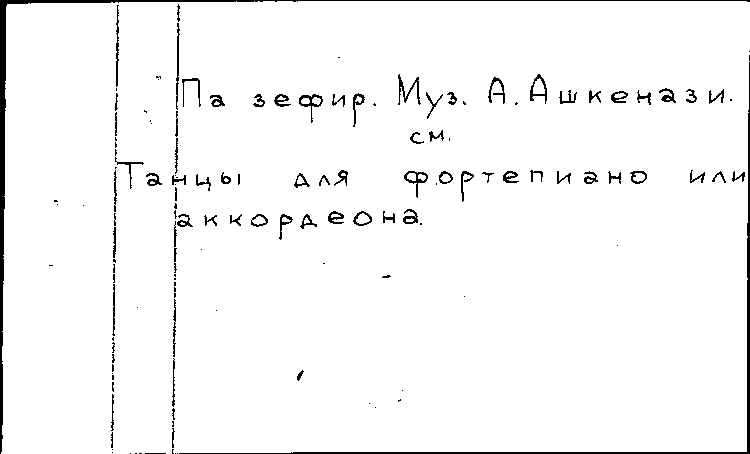 Па зефир. Муз. А. Ашкенази.
см.
Танцы для фортепиано или
аккордеона.